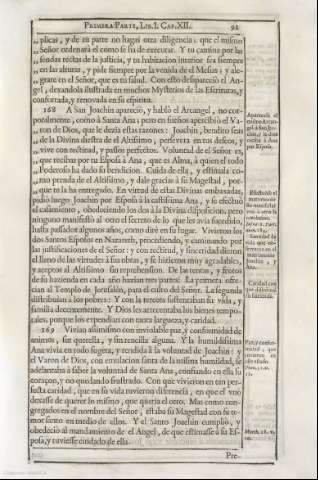 PRIMERA PARTE, LIB. I. CAP. XII. 91
plicas, y de tu parte no hagas otra diligencia: que el mismo
Señor ordenará el como se ha de executar. Y tu camina por las
sendas rectas de la justicia, y tu habitacion interior sea siempre
en las alturas, y pide siempre por la venida de el Mesias; y ale-
grate en el Señor, que es tu salud. Con esto desapareciò el An-
gel, dexandola ilustrada en muchos Mysterios de las Escrituras, y
confortada, y renovada en su espiritu.
168 A San Joachin apareciò, y hablò el Arcangel, no cor-
poralmente, como à Santa Ana; pero en sueños apercibiò el Va-
ron de Dios, que le dezia estas razones: Joachin, bendito seas
de la Divina diestra de el Altissimo, persevera en tus deseos, y
vive con rectitud, y passos perfectos. Voluntad de el Señor es,
que recibas por tu Esposa à Ana, que es Alma, à quien el todo
Poderoso ha dado su bendicion. Cuida de ella, y estimala co-
mo prenda de el Altissimo, y dale gracias à su Magestad, por-
que te la ha entregado. En virtud de estas Divinas embaxadas,
pidiò luego Joachin por Esposa à la castissima Ana, y se efectuò
el casamiento, obedeciendo los dos à la Divina disposicion, pero
ninguno manifestò al otro el secreto de lo que les avia sucedido,
hasta passados algunos años, como dirè en su lugar. Vivieron los
dos Santos Esposos en Nazareth, procediendo, y caminando por
las justificaciones de el Señor; y con rectitud, y sinceridad dieron
el lleno de las virtudes à sus obras, y se hizieron muy agradables,
y aceptos al Altissimo sin reprehension. De las rentas, y frutos
de su hazienda en cada año hazian tres partes: La primera ofre-
cian al Templo de Jerusalen, para el culto del Señor. La segunda
distribuìan à los pobres: Y con la tercera sustentaban su vida, y
familia decentemente. Y Dios les acrecentaba los bienes tempo-
rales, porque los expendian con tanta largueza, y caridad.
169 Vivian assimismo con inviolable paz, y conformidad de
animos, sin querella, y sin rencilla alguna. Y la humildissima
Ana vivia en todo sugeta, y rendida à la voluntad de Joachin: Y
el Varon de Dios, con emulacion santa de la misma humildad, se
adelantaba à saber la voluntad de Santa Ana, confiando en ella su
coraçon, y no quedando frustrado. Con que vivieron en tan per-
fecta caridad, que en su vida tuvieron diferencia, en que el vno
dexasse de querer lo mismo, que queria el otro. Mas como con-
gregados en el nombre del Señor, estaba su Magestad con su te-
mor santo en medio de ellos. Y el Santo Joachin cumpliò, y
obedeciò al mandamiento de el Angel, de que estimasse à su Es-
posa, y tuviesse cuidado de ella.
Pre-